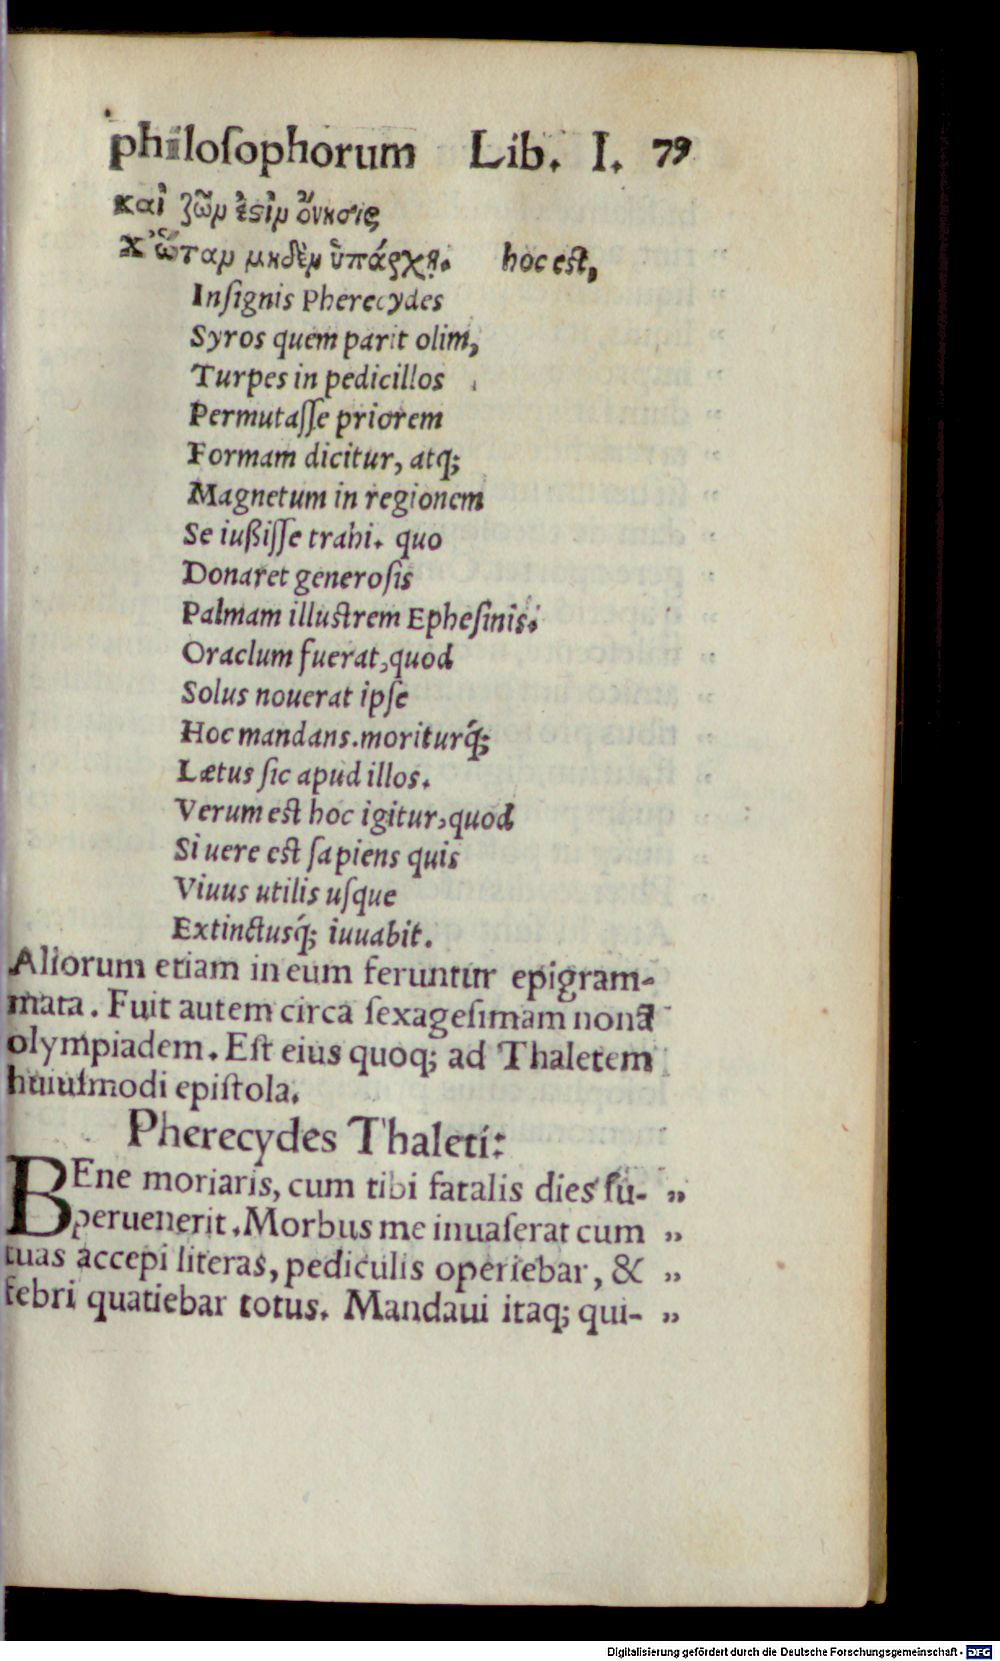 philoſophorum Lib. I. 79
καὶ ζῶν ἐςὶν ὄνησις
χ' ὥταν μηδὲν ὑπάρχῃ. hoc eſt,
Inſignis Pherecydes
Syros quem parit olim,
Turpes in pedicillos
Permutaſſe priorem
Formam dicitur, atq;
Magnetum in regionem
Se iußiſſe trahi. quo
Donaret generoſis
Palmam illuſtrem Epheſinis.
Oraclum fuerat, quod
Solus nouerat ipſe
Hoc mandans. moriturq́;
Lætus ſic apud illos.
Verum eſt hoc igitur, quod
Si uere eſt ſapiens quis
Viuus utilis uſque
Extinctusq́; iuuabit.
Aliorum etiam in eum feruntur epigram-
mata. Fuit autem circa ſexageſimam nonā
olympiadem. Eſt eius quoq; ad Thaletem
huiuſmodi epiſtola.
Pherecydes Thaleti:
BEne moriaris, cum tibi fatalis dies ſu- „
peruenerit. Morbus me inuaſerat cum „
tuas accepi literas, pediculis operiebar, & „
febri quatiebar totus. Mandaui itaq; qui- „
Digitalisierung gefördert durch die Deutsche Forschungsgemeinschaft - DFG